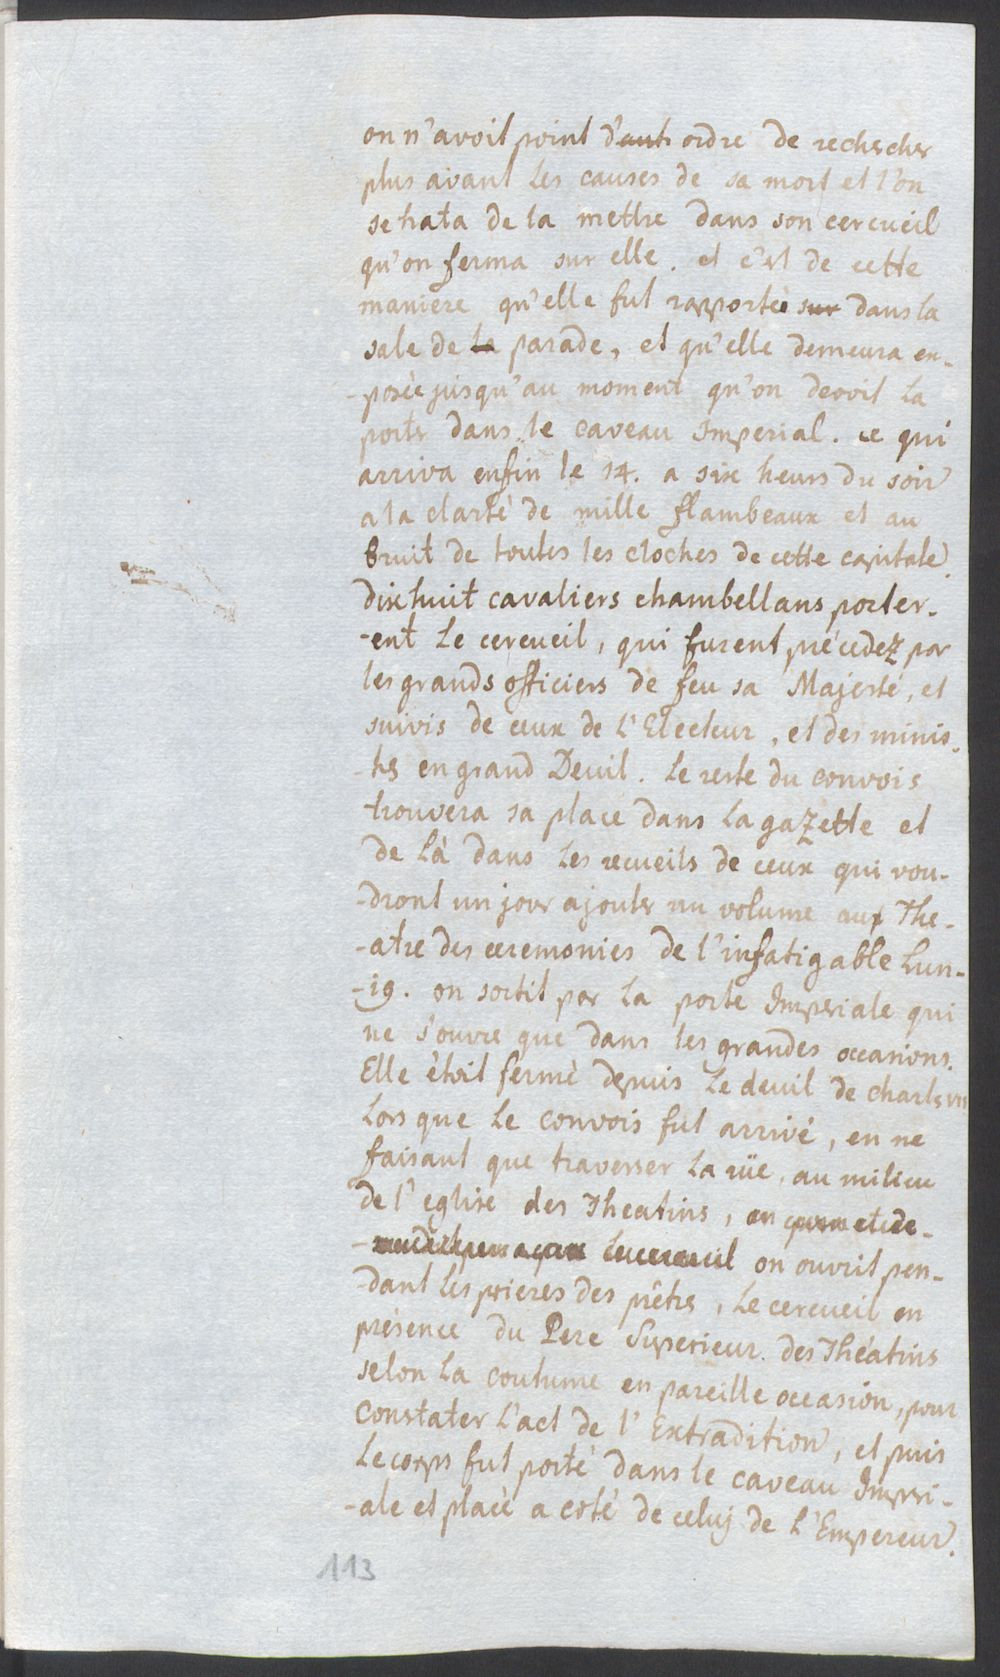 on n'avoit point d'aut. ordre de rechercher
plus avant les causes de sa mort et l'on
se hata de la mettre dans son cercueil
qu'on ferma sur elle. et c'est de cette
maniere qu'elle fut rapportée sur dans la
sale de la parade, et qu'elle demeura ex-
-posée jusqu'au moment qu'on devoit la
porter dans le caveau Imperial. ce qui
arriva enfin le 14. a six heurs du soir
a la clarté de mille flambeaux et au
bruit de toutes les cloches de cette capitale.
dixhuit cavaliers chambellans porter-
-ent le cercueil, qui furent précedez par
les grands officiers de feu sa Majesté, et
suivis de ceux de l'Electeur, et des minis-
-trs en grand Deuil. le reste du convois
trouvera sa place dans la gazette et
de là dans les recueils de ceux qui vou-
-dront un jour ajouter un volume aux The-
-atre des ceremonies de l'infatigable Lun-
-ig. on sortit par la porte Imperiale qui
ne s'ouvre que dans les grandes occasions.
Elle étoit fermé depuis le deuil de charls VII
Lors que le convois fut arrivé, en ne
faisant que traverser la rüe, au milieu
de l'eglise des Theatins, on
on ouvrit pen-
-dant les prieres des prêtrs, le cercueil en
présence du Pere Superieur des Théatins
selon la coutume en pareille occasion, pour
constater l'act de l'Extradition, et puis
le corps fut porté dans le caveau Imperi-
-ale et placé a coté de celuj de l'Empereur.
113